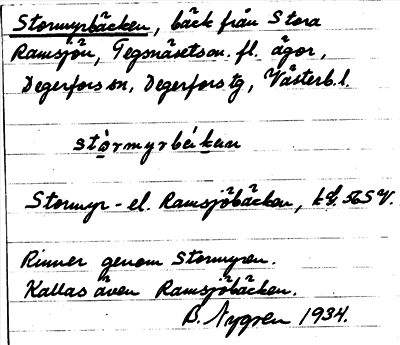 Stormyrbäcken, bäck från Stora
Ramsjön, Tegsnäset m. fl. ägor,
Degerfors sn, Degerfors tg, Västerb. l.
stòrmyrbékɐn
Stormyr- el. Ramsjöbäcken, 56 S V.
Rinner genom Stormyren.
Kallas även Ramsjöbäcken.
B. Nygren 1934.